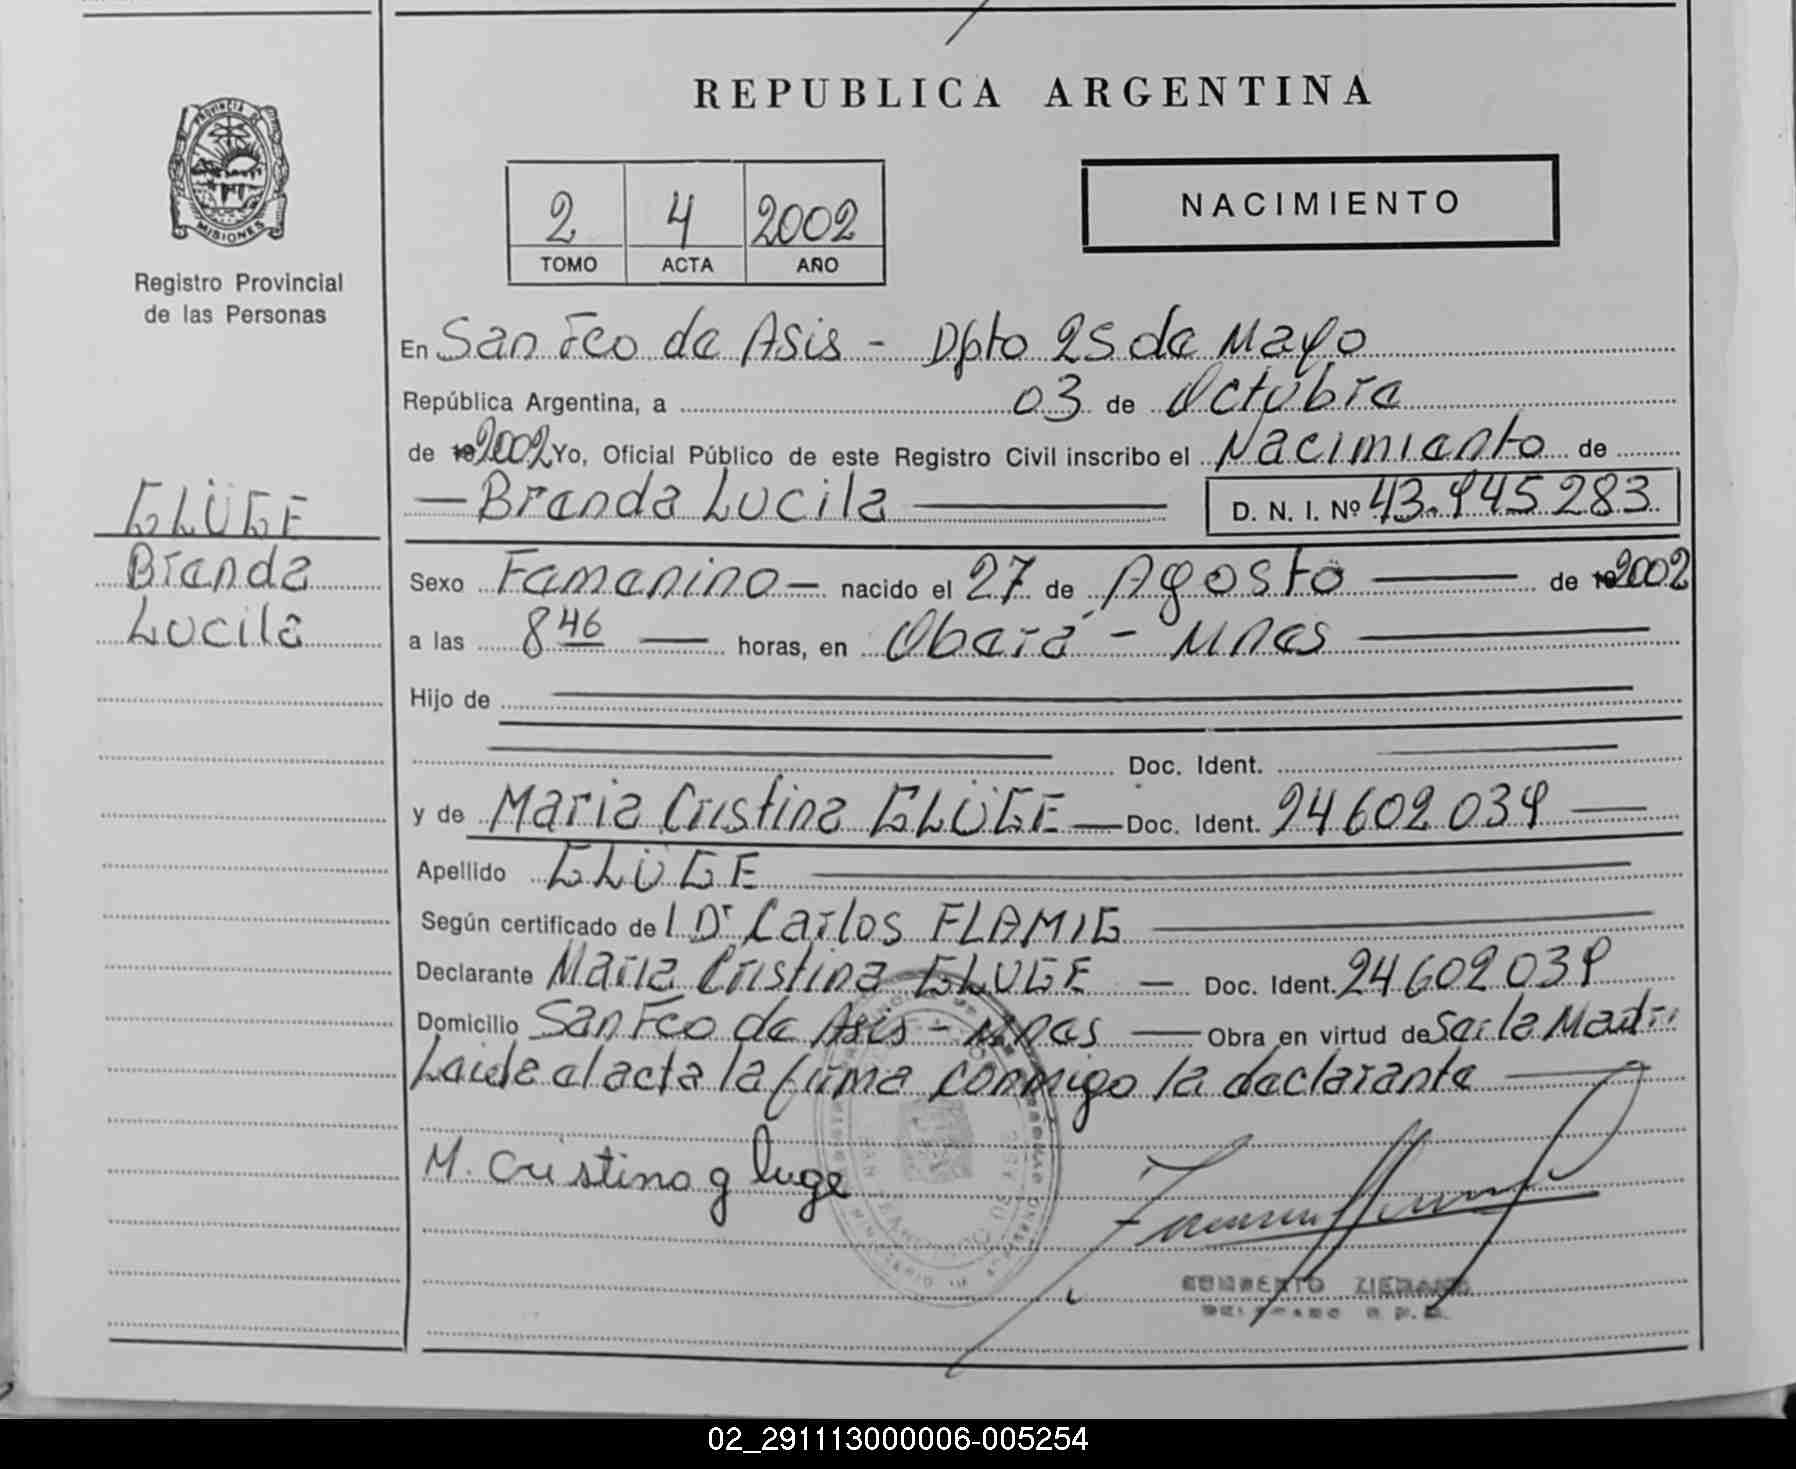 REPUBLICA ARGENTINA
PROVINCIA DE
MISIONES
Registro Provincial
de las Personas
2 4 2002
TOMO ACTA AÑO
NACIMIENTO
En San Fco de Asis - Dpto 25 de Mayo
República Argentina, a 03 de Octubre
de 2002 Yo, Oficial Público de este Registro Civil inscribo el Nacimiento de
GLÜGE
Brenda
Lucila
— Brenda Lucila — D. N. I. Nº 43.945.283
Sexo Femenino — nacido el 27 de Agosto — de 2002
a las 8 46 — horas, en Oberá - Mnes —
Hijo de
Doc. Ident.
y de Maria Cristina GLÜGE — Doc. Ident. 24602039 —
Apellido GLÜGE
Según certificado de l Dr Carlos FLAMIG
Declarante Maria Cristina GLUGE — Doc. Ident. 24602039
Domicilio San Fco de Asis - Mnes — Obra en virtud de Ser la Madre
Leida el acta la firma conmigo la declarante
M. Cristina gluge
02_291113000006-005254